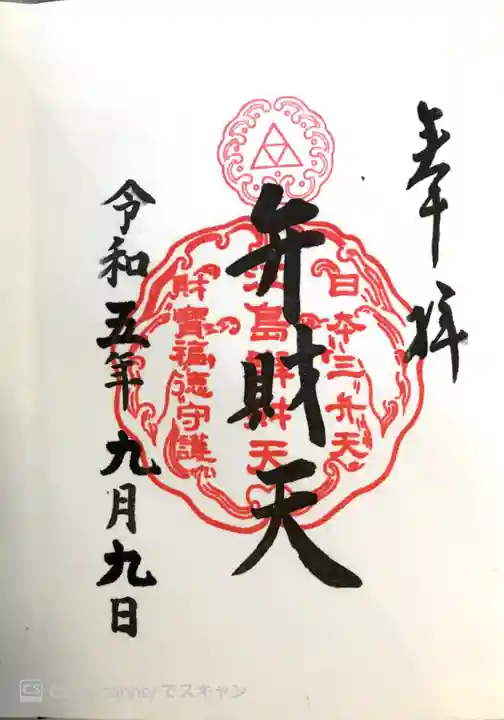 奉拝
日本三弁天
江島弁財天
弁財天
財寶福徳守護
令和五年九月九日
CS CamScannerでスキャン